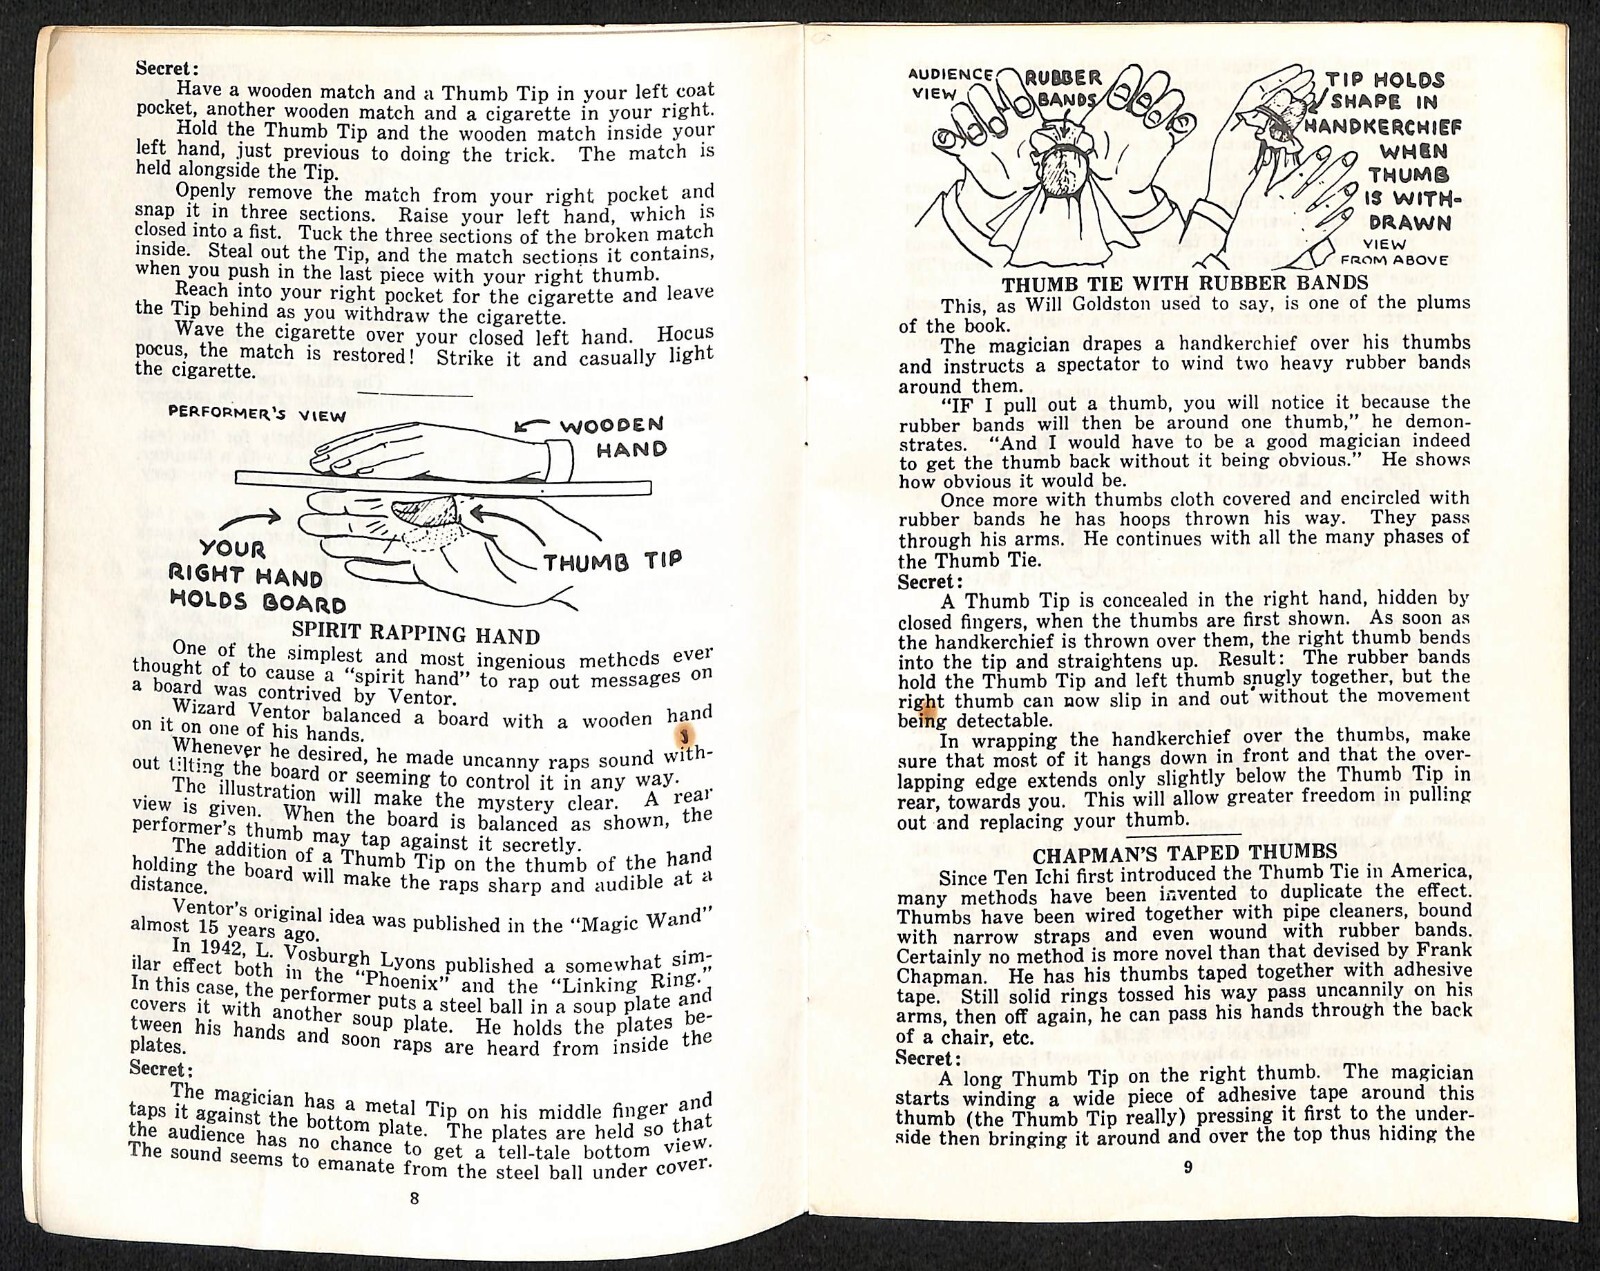 Secret:
Have a wooden match and a Thumb Tip in your left coat
pocket, another wooden match and a cigarette in your right.
Hold the Thumb Tip and the wooden match inside your
left hand, just previous to doing the trick. The match is
held alongside the Tip.
Openly remove the match from your right pocket and
snap it in three sections. Raise your left hand, which is
closed into a fist. Tuck the three sections of the broken match
inside. Steal out the Tip, and the match sections it contains,
when you push in the last piece with your right thumb.
Reach into your right pocket for the cigarette and leave
the Tip behind as you withdraw the cigarette.
Wave the cigarette over your closed left hand. Hocus
pocus, the match is restored! Strike it and casually light
the cigarette.
PERFORMER'S VIEW
WOODEN
HAND
YOUR
RIGHT HAND
HOLDS BOARD
THUMB TIP
SPIRIT RAPPING HAND
One of the simplest and most ingenious methods ever
thought of to cause a "spirit hand" to rap out messages on
a board was contrived by Ventor.
Wizard Ventor balanced a board with a wooden hand
on it on one of his hands.
Whenever he desired, he made uncanny raps sound with-
out tilting the board or seeming to control it in any way.
The illustration will make the mystery clear. A rear
view is given. When the board is balanced as shown, the
performer's thumb may tap against it secretly.
The addition of a Thumb Tip on the thumb of the hand
holding the board will make the raps sharp and audible at a
distance.
Ventor's original idea was published in the "Magic Wand"
almost 15 years ago.
In 1942, L. Vosburgh Lyons published a somewhat sim-
ilar effect both in the "Phoenix" and the "Linking Ring."
In this case, the performer puts a steel ball in a soup plate and
covers it with another soup plate. He holds the plates be-
tween his hands and soon raps are heard from inside the
plates.
Secret:
The magician has a metal Tip on his middle finger and
taps it against the bottom plate. The plates are held so that
the audience has no chance to get a tell-tale bottom view.
The sound seems to emanate from the steel ball under cover.
8
AUDIENCE
VIEW
RUBBER
BANDS
TIP HOLDS
SHAPE IN
HANDKERCHIEF
WHEN
THUMB
IS WITH-
DRAWN
VIEW
FROM ABOVE
THUMB TIE WITH RUBBER BANDS
This, as Will Goldston used to say, is one of the plums
of the book.
The magician drapes a handkerchief over his thumbs
and instructs a spectator to wind two heavy rubber bands
around them.
"IF I pull out a thumb, you will notice it because the
rubber bands will then be around one thumb," he demon-
strates. "And I would have to be a good magician indeed
to get the thumb back without it being obvious." He shows
how obvious it would be.
Once more with thumbs cloth covered and encircled with
rubber bands he has hoops thrown his way. They pass
through his arms. He continues with all the many phases of
the Thumb Tie.
Secret:
A Thumb Tip is concealed in the right hand, hidden by
closed fingers, when the thumbs are first shown. As soon as
the handkerchief is thrown over them, the right thumb bends
into the tip and straightens up. Result: The rubber bands
hold the Thumb Tip and left thumb snugly together, but the
right thumb can now slip in and out without the movement
being detectable.
In wrapping the handkerchief over the thumbs, make
sure that most of it hangs down in front and that the over-
lapping edge extends only slightly below the Thumb Tip in
rear, towards you. This will allow greater freedom in pulling
out and replacing your thumb.
CHAPMAN'S TAPED THUMBS
Since Ten Ichi first introduced the Thumb Tie in America,
many methods have been invented to duplicate the effect.
Thumbs have been wired together with pipe cleaners, bound
with narrow straps and even wound with rubber bands.
Certainly no method is more novel than that devised by Frank
Chapman. He has his thumbs taped together with adhesive
tape. Still solid rings tossed his way pass uncannily on his
arms, then off again, he can pass his hands through the back
of a chair, etc.
Secret:
A long Thumb Tip on the right thumb. The magician
starts winding a wide piece of adhesive tape around this
thumb (the Thumb Tip really) pressing it first to the under-
side then bringing it around and over the top thus hiding the
9